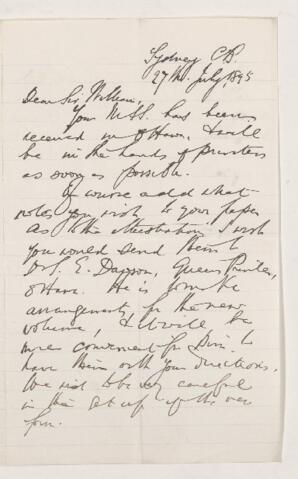 Sydney C.B.
27th July 1895
Dear Sir William,
Your MSS. has been
received in Ottawa, & will
be in the hands of printers
as soon as possible.
Of course add what
notes you wish to your paper
As to the illustrations I wish
you would send them to
Dr S. E. Dawson, Queen's Printer,
Ottawa. He is to make
arrangements for the new
volume, & it will be
more convenient for him to
have them with your directions.
We wish to be very careful
in the get up of the new
form.